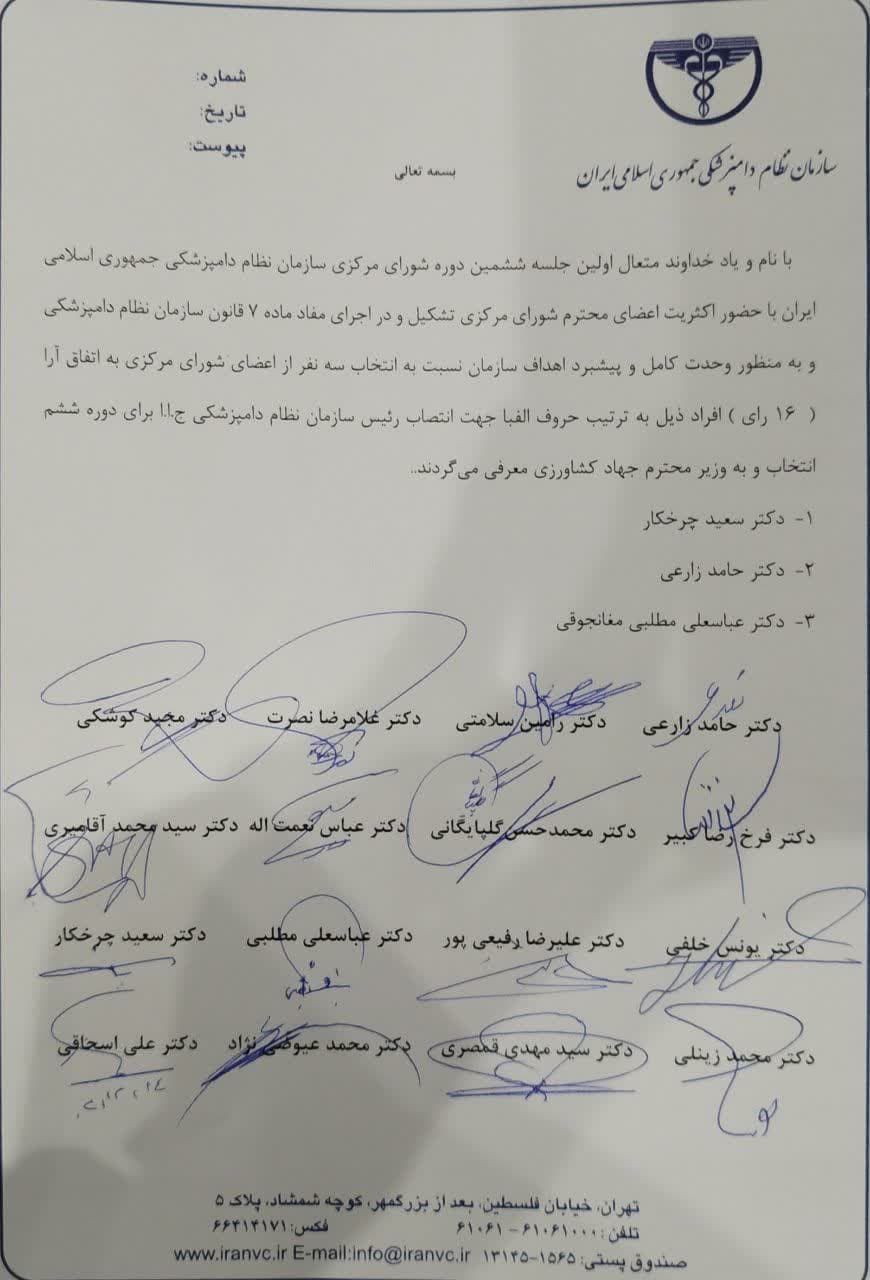 سازمان نظام دامپزشکی جمهوری اسلامی ایران
شماره:
تاریخ:
پیوست:
بسمه تعالی
با نام و یاد خداوند متعال اولین جلسه ششمین دوره شورای مرکزی سازمان نظام دامپزشکی جمهوری اسلامی
ایران با حضور اکثریت اعضای محترم شورای مرکزی تشکیل و در اجرای مفاد ماده ۷ قانون سازمان نظام دامپزشکی
و به منظور وحدت کامل و پیشبرد اهداف سازمان نسبت به انتخاب سه نفر از اعضای شورای مرکزی به اتفاق آرا
( ۱۶ رای ) افراد ذیل به ترتیب حروف الفبا جهت انتصاب رئیس سازمان نظام دامپزشکی ج.ا.ا برای دوره ششم
انتخاب و به وزیر محترم جهاد کشاورزی معرفی می‌گردند..
۱- دکتر سعید چرخکار
۲- دکتر حامد زارعی
۳- دکتر عباسعلی مطلبی مغانجوقی
دکتر حامد زارعی دکتر رامین سلامتی دکتر غلامرضا نصرت دکتر مجید کوشکی
دکتر فرخ رضا کبیر دکتر محمدحسن گلپایگانی دکتر عباس نعمت اله دکتر سید محمد آقامیری
دکتر یونس خلفی دکتر علیرضا رفیعی پور دکتر عباسعلی مطلبی دکتر سعید چرخکار
دکتر محمد زینلی دکتر سید مهدی قمصری دکتر محمد عیوضی نژاد دکتر علی اسحاقی
تهران، خیابان فلسطین، بعد از بزرگمهر، کوچه شمشاد، پلاک ۵
تلفن: ۶۱۰۶۱۰۰۰ - ۶۱۰۶۱ فکس: ۶۶۴۱۴۱۷۱
صندوق پستی: ۱۵۶۵-۱۳۱۴۵ www.iranvc.ir E-mail:info@iranvc.ir